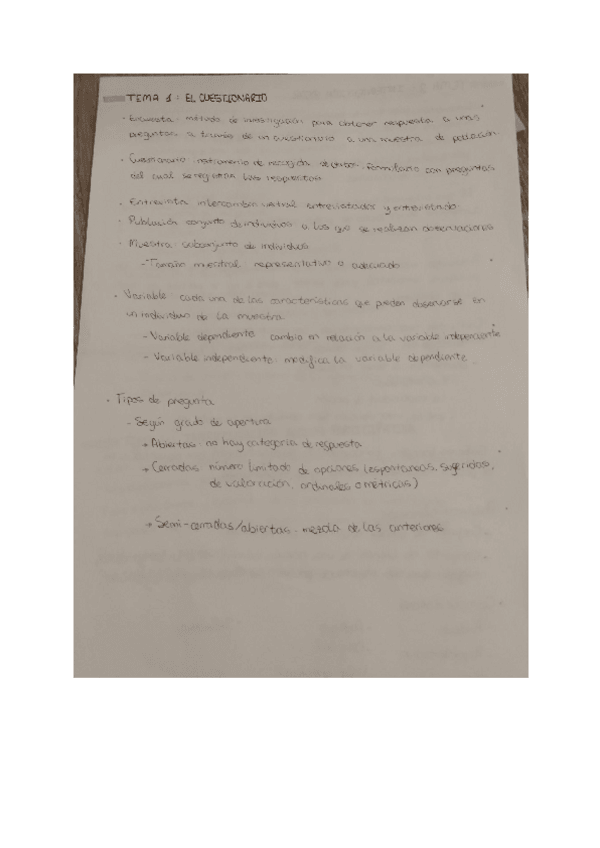 TEMA 1: EL CUESTIONARIO
· Encuesta: método de investigación para obtener respuesta a unas
preguntas a través de un cuestionario a una muestra de población.
· Cuestionario: instrumento de recogida de datos. Formulario con preguntas
del cual se registran las respuestas
· Entrevista: intercambio verbal entrevistador y entrevistado.
· Población: conjunto de individuos a los que se realizan observaciones
· Muestra: subconjunto de individuos
- Tamaño muestral: representativo o adecuado
· Variable: cada una de las características que pueden observarse en
un individuo de la muestra.
- Variable dependiente: cambia en relación a la variable independiente
- Variable independiente: modifica la variable dependiente.
· Tipos de pregunta
- Según grado de apertura
→ Abiertas: no hay categoría de respuesta
→ Cerradas: número limitado de opciones (espontaneas, sugeridas,
de valoración, ordinales o métricas)
→ Semi-cerradas/abiertas: mezcla de las anteriores